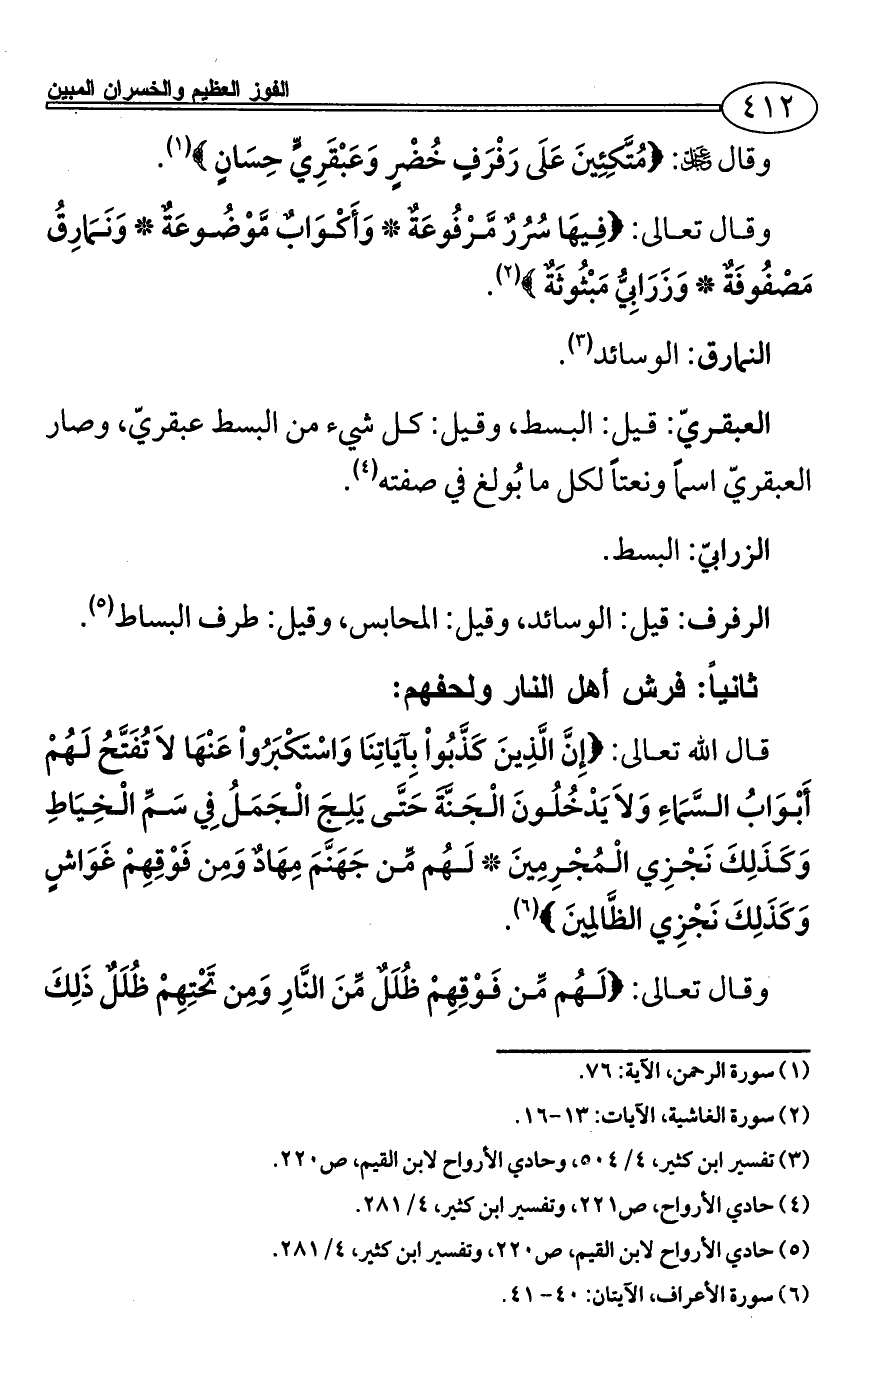 ٤١٢
الفوز العظيم والخسران المبين
وقال ﷻ: ﴿مُتَّكِئِينَ عَلَى رَفْرَفٍ خُضْرٍ وَعَبْقَرِيٍّ حِسَانٍ﴾(١).
وقال تعالى: ﴿فِيهَا سُرُرٌ مَّرْفُوعَةٌ * وَأَكْوَابٌ مَّوْضُوعَةٌ * وَنَمَارِقُ
مَصْفُوفَةٌ * وَزَرَابِيُّ مَبْثُوثَةٌ﴾(٢).
النمارق: الوسائد(٣).
العبقريّ: قيل: البسط، وقيل: كل شيء من البسط عبقريّ، وصار
العبقريّ اسماً ونعتاً لكل ما بُولغ في صفته(٤).
الزرابيّ: البسط.
الرفرف: قيل: الوسائد، وقيل: المحابس، وقيل: طرف البساط(٥).
ثانياً: فرش أهل النار ولحفهم:
قال الله تعالى: ﴿إِنَّ الَّذِينَ كَذَّبُواْ بِآيَاتِنَا وَاسْتَكْبَرُواْ عَنْهَا لاَ تُفَتَّحُ لَهُمْ
أَبْوَابُ السَّمَاءِ وَلاَ يَدْخُلُونَ الْجَنَّةَ حَتَّى يَلِجَ الْجَمَلُ فِي سَمِّ الْخِيَاطِ
وَكَذَلِكَ نَجْزِي الْمُجْرِمِينَ * لَهُم مِّن جَهَنَّمَ مِهَادٌ وَمِن فَوْقِهِمْ غَوَاشٍ
وَكَذَلِكَ نَجْزِي الظَّالِمِينَ﴾(٦).
وقال تعالى: ﴿لَهُم مِّن فَوْقِهِمْ ظُلَلٌ مِّنَ النَّارِ وَمِن تَحْتِهِمْ ظُلَلٌ ذَلِكَ
(١) سورة الرحمن، الآية: ٧٦.
(٢) سورة الغاشية، الآيات: ١٣-١٦.
(٣) تفسير ابن كثير، ٤/ ٥٠٤، وحادي الأرواح لابن القيم، ص٢٢٠.
(٤) حادي الأرواح، ص٢٢١، وتفسير ابن كثير، ٤/ ٢٨١.
(٥) حادي الأرواح لابن القيم، ص٢٢٠، وتفسير ابن كثير، ٤/ ٢٨١.
(٦) سورة الأعراف، الآيتان: ٤٠- ٤١.